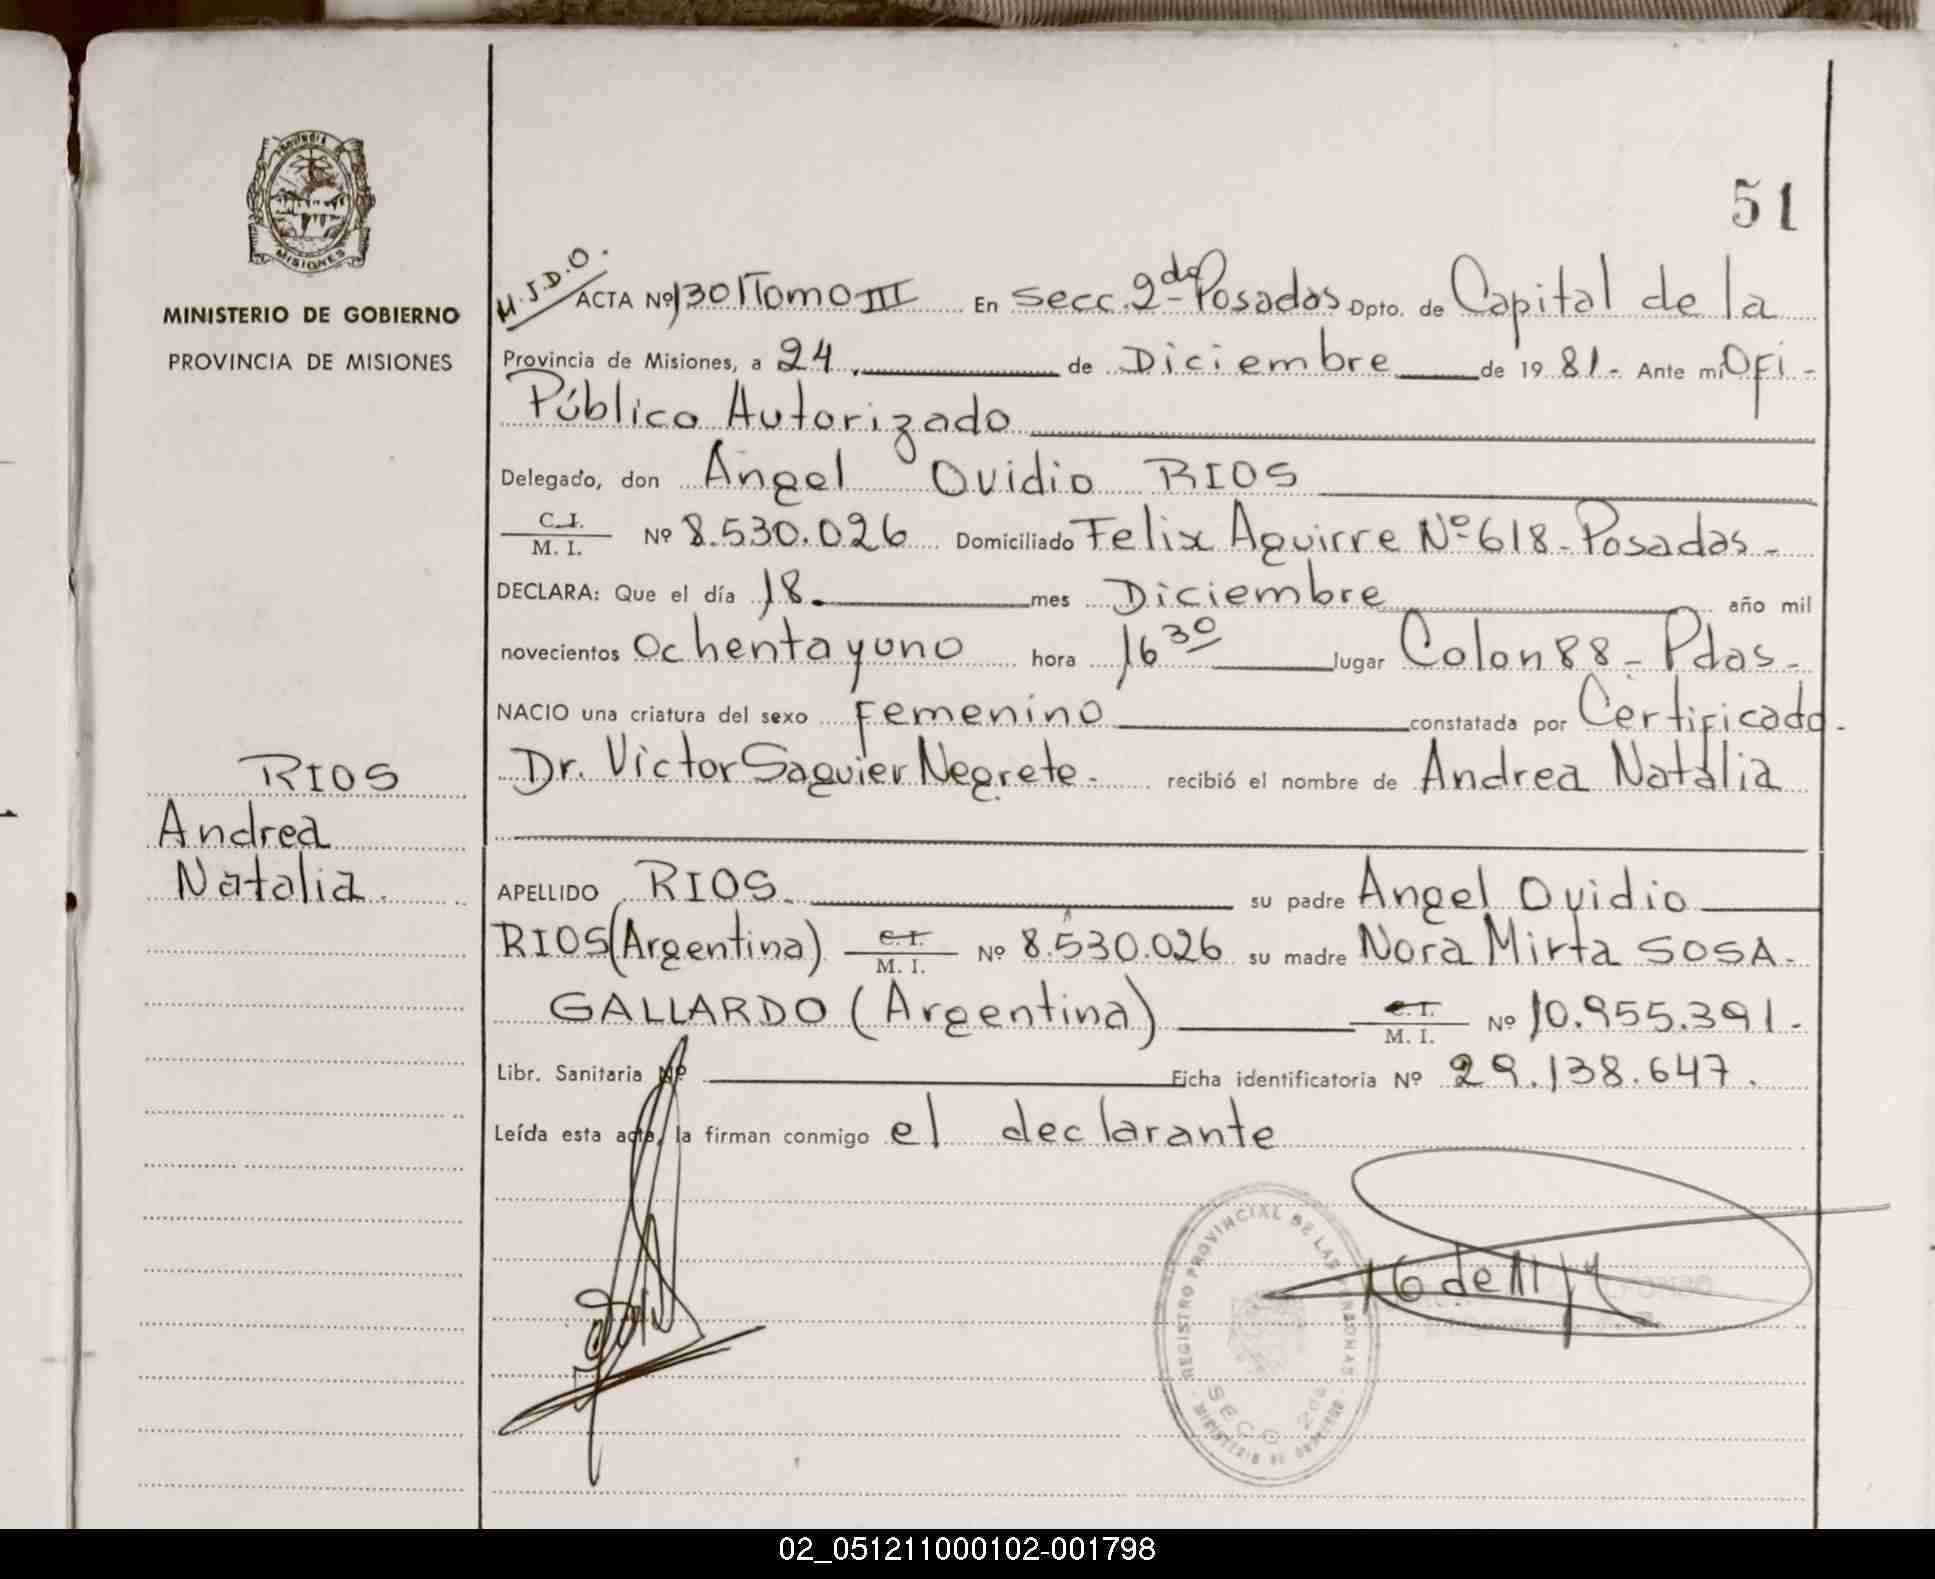 51
PROVINCIA
MISIONES
MINISTERIO DE GOBIERNO
PROVINCIA DE MISIONES
M.J.D.O.
ACTA Nº 1301 Tomo III En Secc. 2da- Posadas Dpto. de Capital de la
Provincia de Misiones, a 24. de Diciembre de 19 81.- Ante mí Ofi-
Público Autorizado
Delegado, don Angel Ovidio RIOS
C.I.
M. I. Nº 8.530.026 Domiciliado Felix Aguirre Nº 618-Posadas-
DECLARA: Que el día 18. mes Diciembre año mil
novecientos Ochenta y uno hora 16 30 lugar Colon 88 - Pdas-
NACIO una criatura del sexo Femenino constatada por Certificado-
Dr. Victor Saguier Negrete- recibió el nombre de Andrea Natalia
RIOS
Andrea
Natalia.
APELLIDO RIOS. su padre Angel Ovidio
RIOS (Argentina) C.I.
M. I. Nº 8.530.026 su madre Nora Mirta SOSA-
GALLARDO (Argentina) C.I.
M. I. Nº 10.955.391-
Libr. Sanitaria Nº Ficha identificatoria Nº 29.138.647.
Leída esta acta, la firman conmigo el declarante
REGISTRO PROVINCIAL DE LAS PERSONAS
SECC 2da.
MINISTERIO DE GOBIERNO
02_051211000102-001798